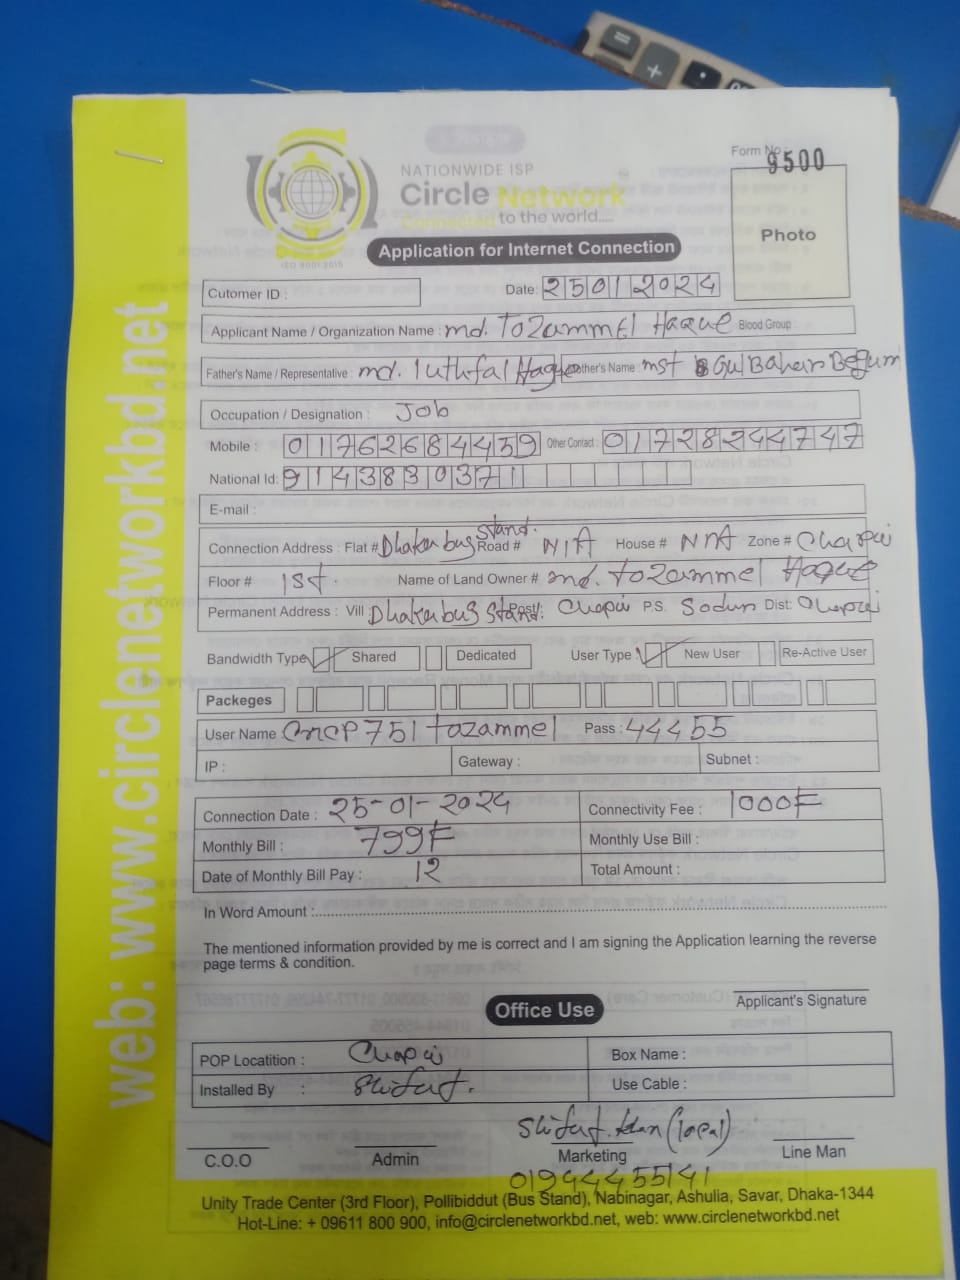 Form No : 9500
NATIONWIDE ISP
Circle Network
Connected to the world.....
ISO 9001:2015
Photo
Application for Internet Connection
Cutomer ID :
Date: 25012024
Applicant Name / Organization Name : md. Tozammel Haque Blood Group :
Father's Name / Representative : md. luthfal Haque Mother's Name : mst Gul Bahar Begum
Occupation / Designation : Job
Mobile : 01762684459 Other Contact : 01728244747
National Id: 9143830371
E-mail :
Connection Address : Flat # Dhaka bus stand. Road # N/A House # N/A Zone # Chapai
Floor # 1st. Name of Land Owner # md. tozammel Haque
Permanent Address : Vill: Dhaka bus stand. Post: Chapai P.S. Sodur Dist: Chapai
Bandwidth Type Shared Dedicated User Type : New User Re-Active User
Packeges
User Name : cncp751 tozammel Pass : 44455
IP : Gateway : Subnet :
Connection Date : 25-01-2024 Connectivity Fee : 1000৳
Monthly Bill : 799৳ Monthly Use Bill :
Date of Monthly Bill Pay : 12 Total Amount :
In Word Amount :
The mentioned information provided by me is correct and I am signing the Application learning the reverse
page terms & condition.
Applicant's Signature
Office Use
POP Locatition : Chapai Box Name :
Installed By : Shifut. Use Cable :
Shifut (local)
C.O.O Admin Marketing Line Man
01944455141
Unity Trade Center (3rd Floor), Pollibiddut (Bus Stand), Nabinagar, Ashulia, Savar, Dhaka-1344
Hot-Line: + 09611 800 900, info@circlenetworkbd.net, web: www.circlenetworkbd.net
web: www.circlenetworkbd.net